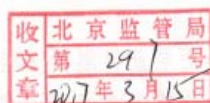 收文章
北京监管局
第297号
2017年3月15日